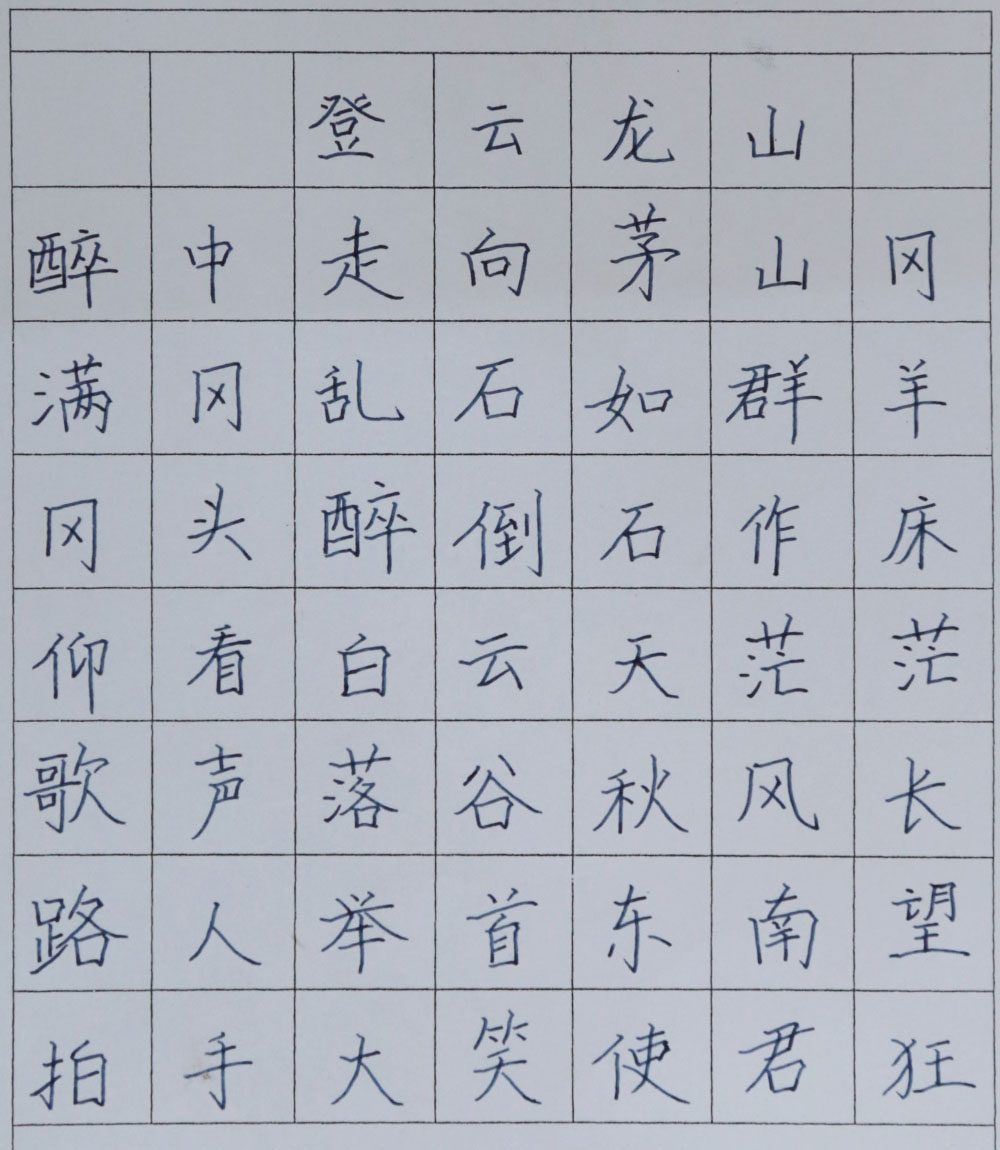 登云龙山
醉中走向茅山冈
满冈乱石如群羊
冈头醉倒石作床
仰看白云天茫茫
歌声落谷秋风长
路人举首东南望
拍手大笑使君狂